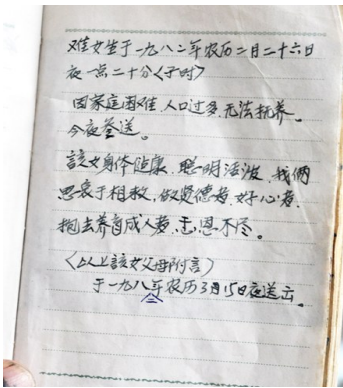 难女生于一九八二年农历二月二十六日
夜一点二十分〈子时〉
因家庭困难、人口过多、无法抚养。
今夜奉送。
該女身体健康、聪明活波、我們
思哀于相救、做贤德者、好心者、
抱去养育成人者、恩不尽。
〈以上該女父母附言〉
于一九八二年农历3月15日夜送出。